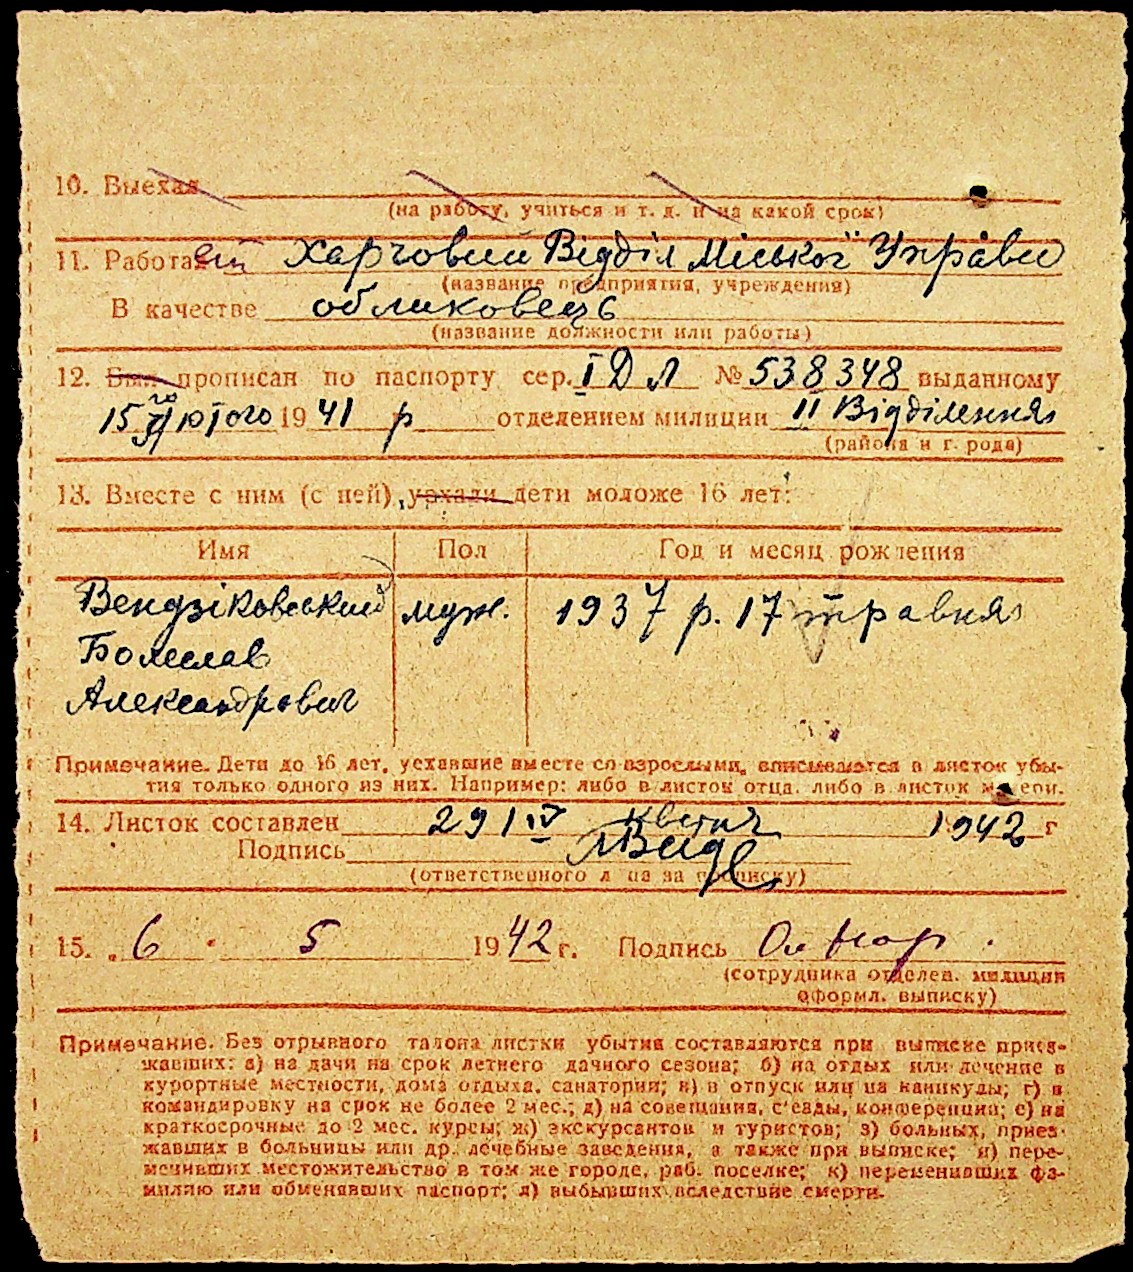 10. Выехал
(на работу, учиться и т. д. и на какой срок)
11. Работает Харчовий Відділ Міської Управи
(название предприятия, учреждения)
В качестве обликовець
(название должности или работы)
12. Был прописан по паспорту сер. І ДЛ № 538348 выданному
15го лютого 1941 р отделением милиции II Відділення
(района и города)
13. Вместе с ним (с ней) уехали дети моложе 16 лет:
Имя Пол Год и месяц рождения
Вендзіковський муж. 1937 р. 17 травня
Болеслав
Александрович
Примечание. Дети до 16 лет, уехавшие вместе со взрослыми, вписываются в листок убы-
тия только одного из них. Например: либо в листок отца, либо в листок матери.
14. Листок составлен 29 IV квітня 1942 г
Подпись
(ответственного лица за прописку)
15. „ 6 " 5 1942 г. Подпись
(сотрудника отделен. милиции
оформл. выписку)
Примечание. Без отрывного талона листки убытия составляются при выписке приез-
жавших: а) на дачи на срок летнего дачного сезона; б) на отдых или лечение в
курортные местности, дома отдыха, санатории; в) в отпуск или на каникулы; г) в
командировку на срок не более 2 мес.; д) на совещания, с'езды, конференции; е) на
краткосрочные до 2 мес. курсы; ж) экскурсантов и туристов; з) больных, приез-
жавших в больницы или др. лечебные заведения, а также при выписке; и) пере-
менивших местожительство в том же городе, раб. поселке; к) переменивших фа-
милию или обменявших паспорт; л) выбывших вследствие смерти.